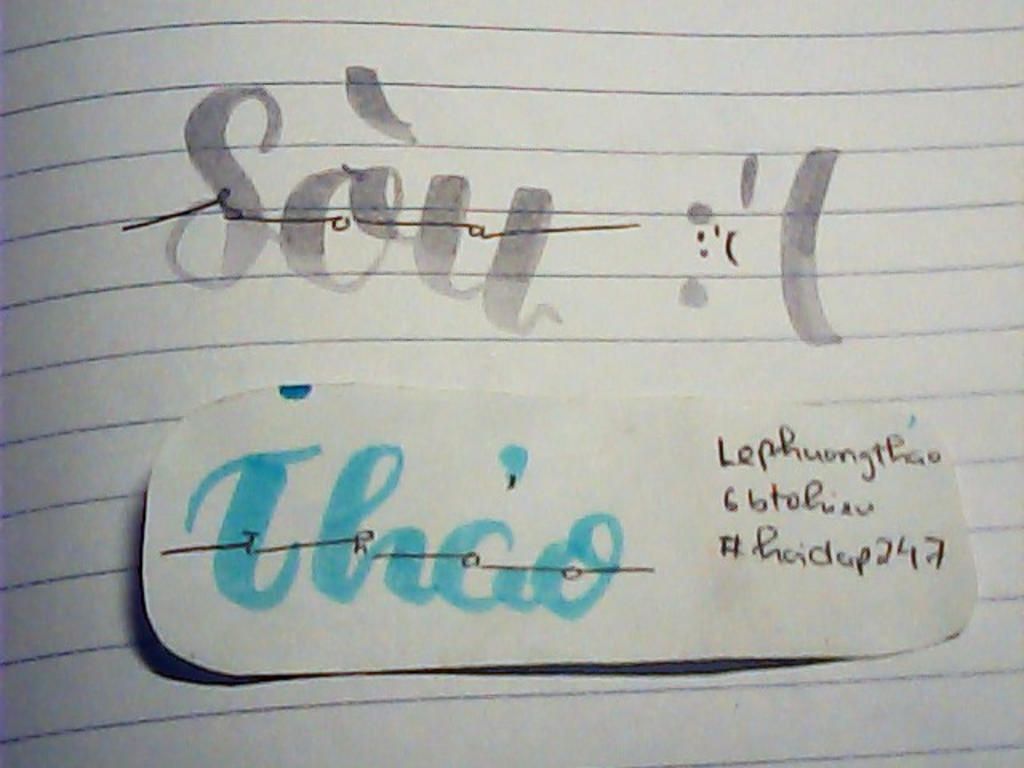 Sầu :'(
:'(
Thảo
T h a o
Lephuongthảo
6btohieu
#hoidap247